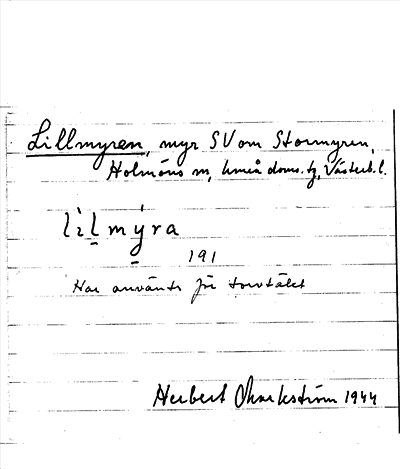 Lillmyren, myr SV om Stormyren,
Holmöns sn, Umeå doms. tg, Västerb. l.
lìl̠mý̠ra
191
Har använts för torvtäkt
Herbert Markström 1944